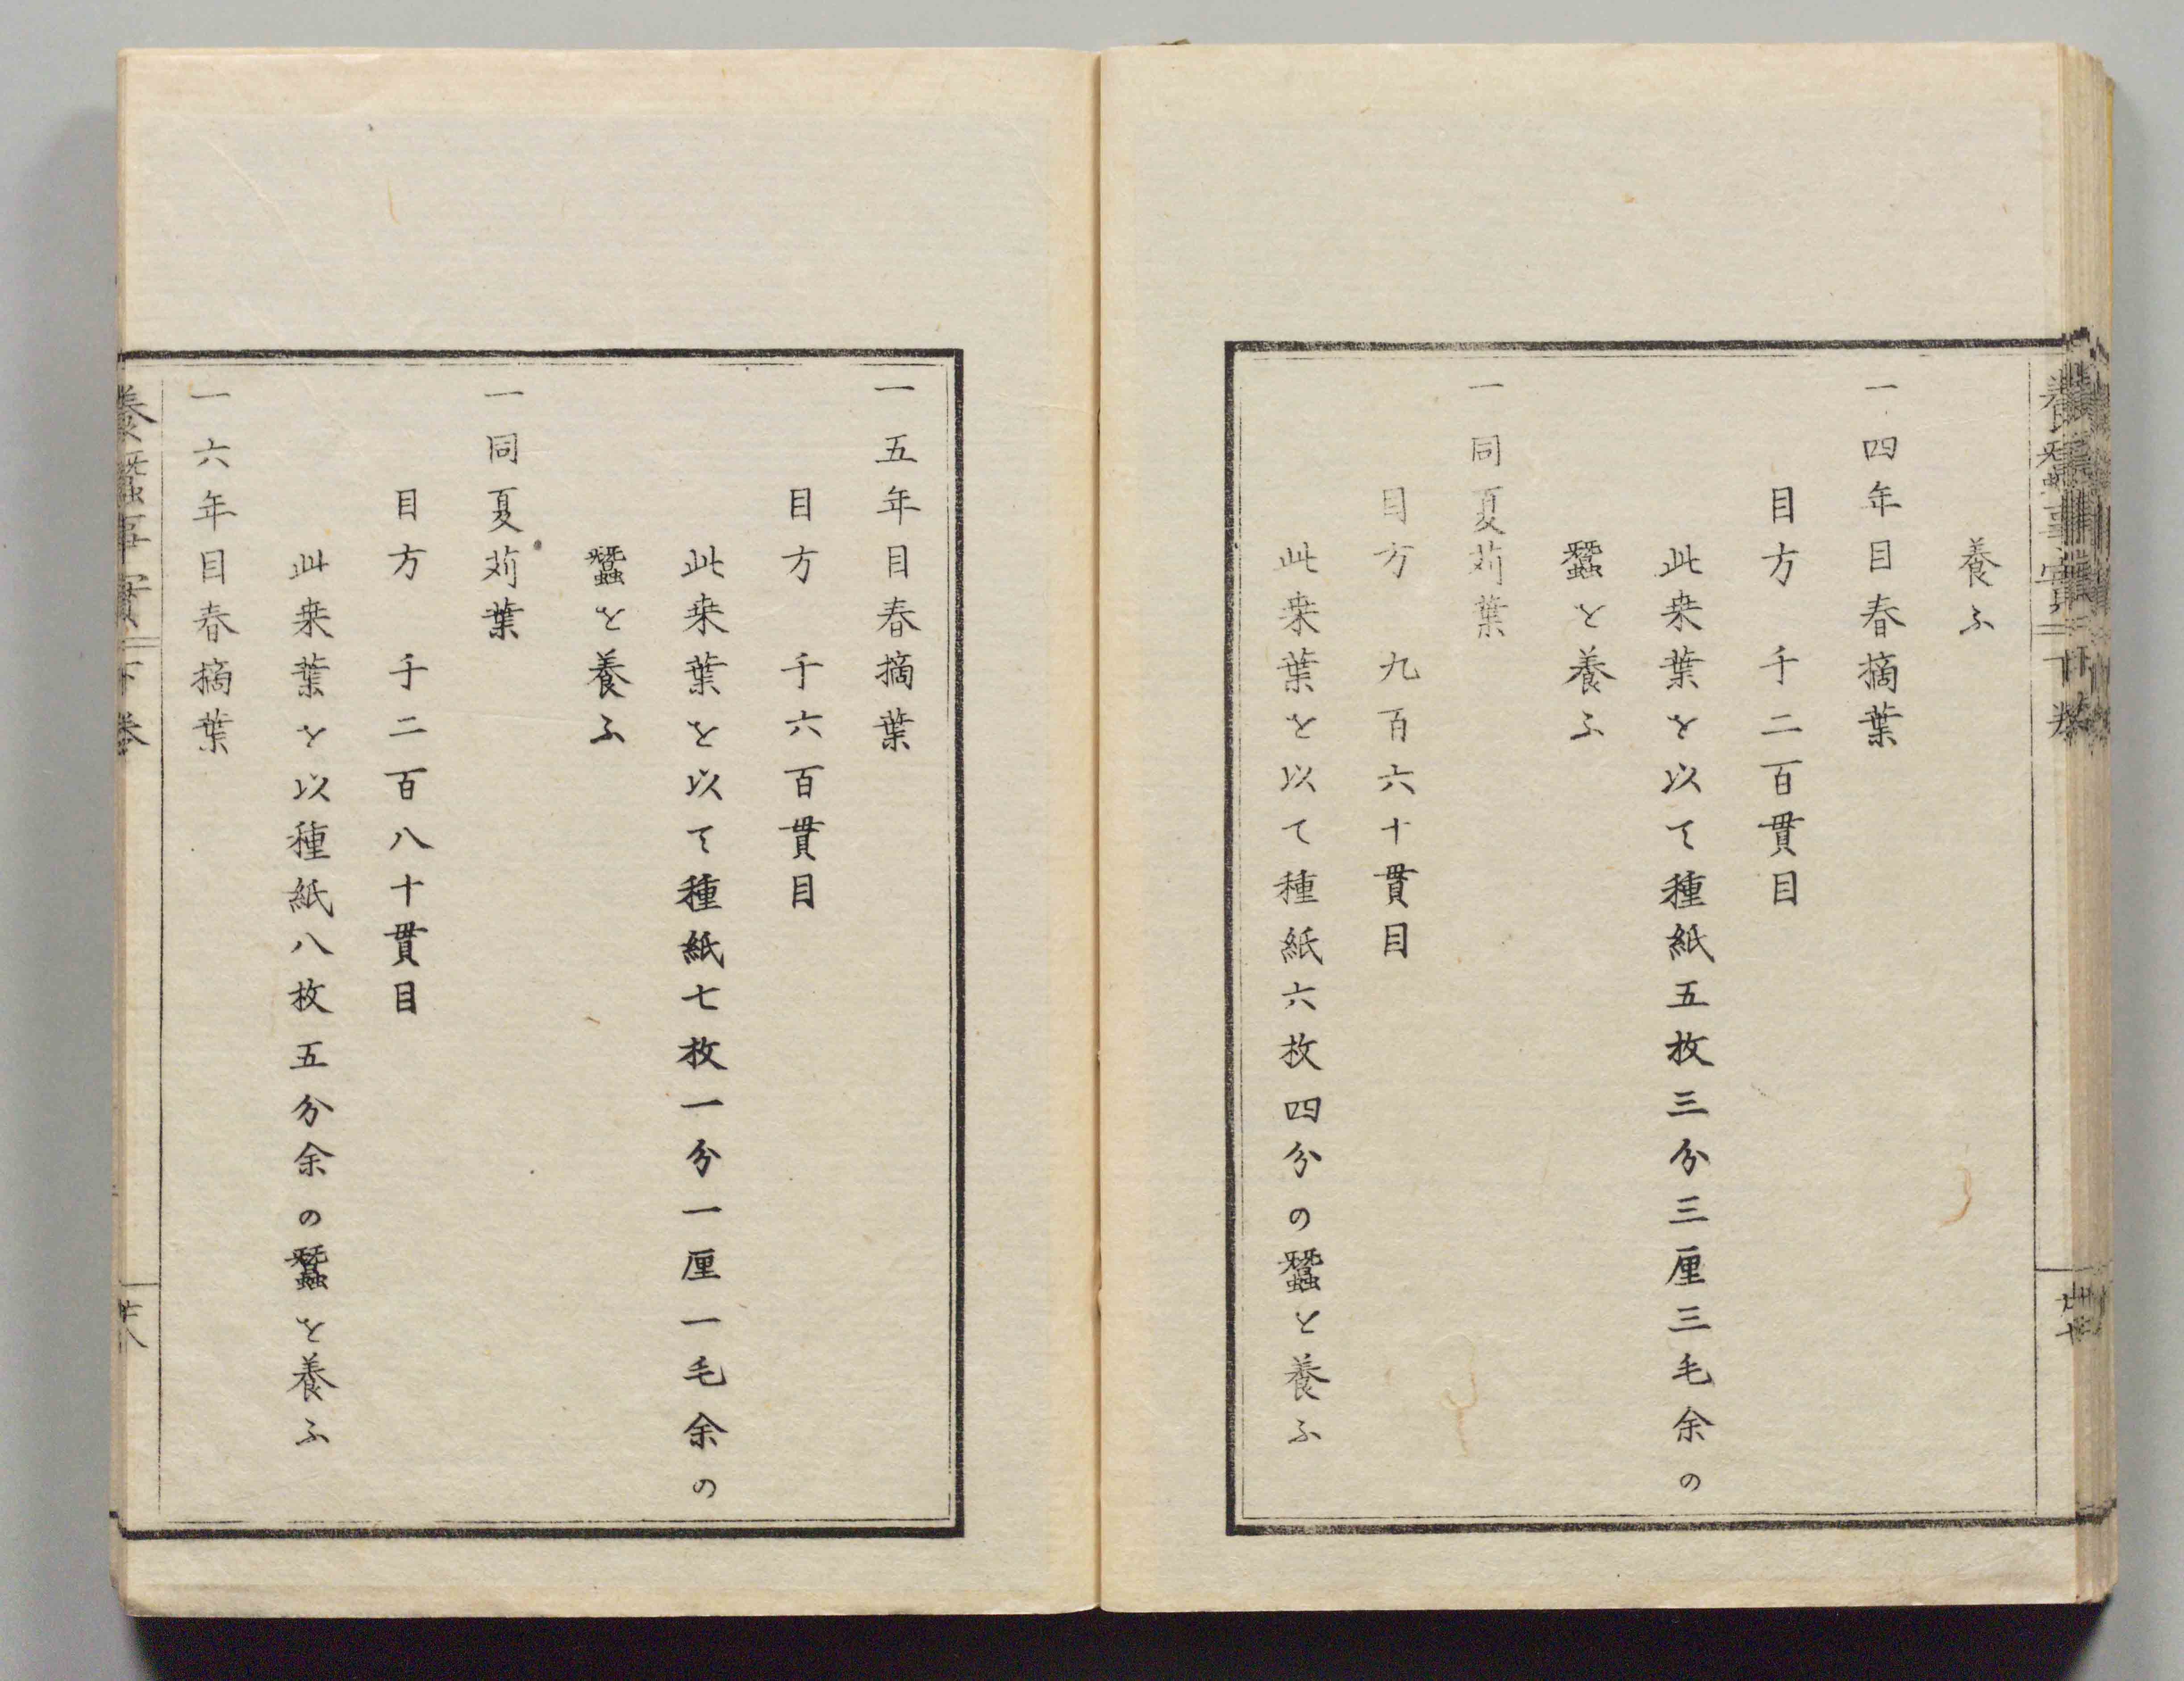 養ふ
一四年目春摘葉
目方 千二百貫目
此桒葉を以て種紙五枚三分三厘三毛余の
蠶を養ふ
一同夏苅葉
目方 九百六十貫目
此桒葉を以て種紙六枚四分の蠶を養ふ
一五年目春摘葉
目方 千六百貫目
此桒葉を以て種紙七枚一分一厘一毛余の
蠶を養ふ
一同夏苅葉
目方 千二百八十貫目
此桒葉を以種紙八枚五分余の蠶を養ふ
一六年目春摘葉
養蠶事實 下巻